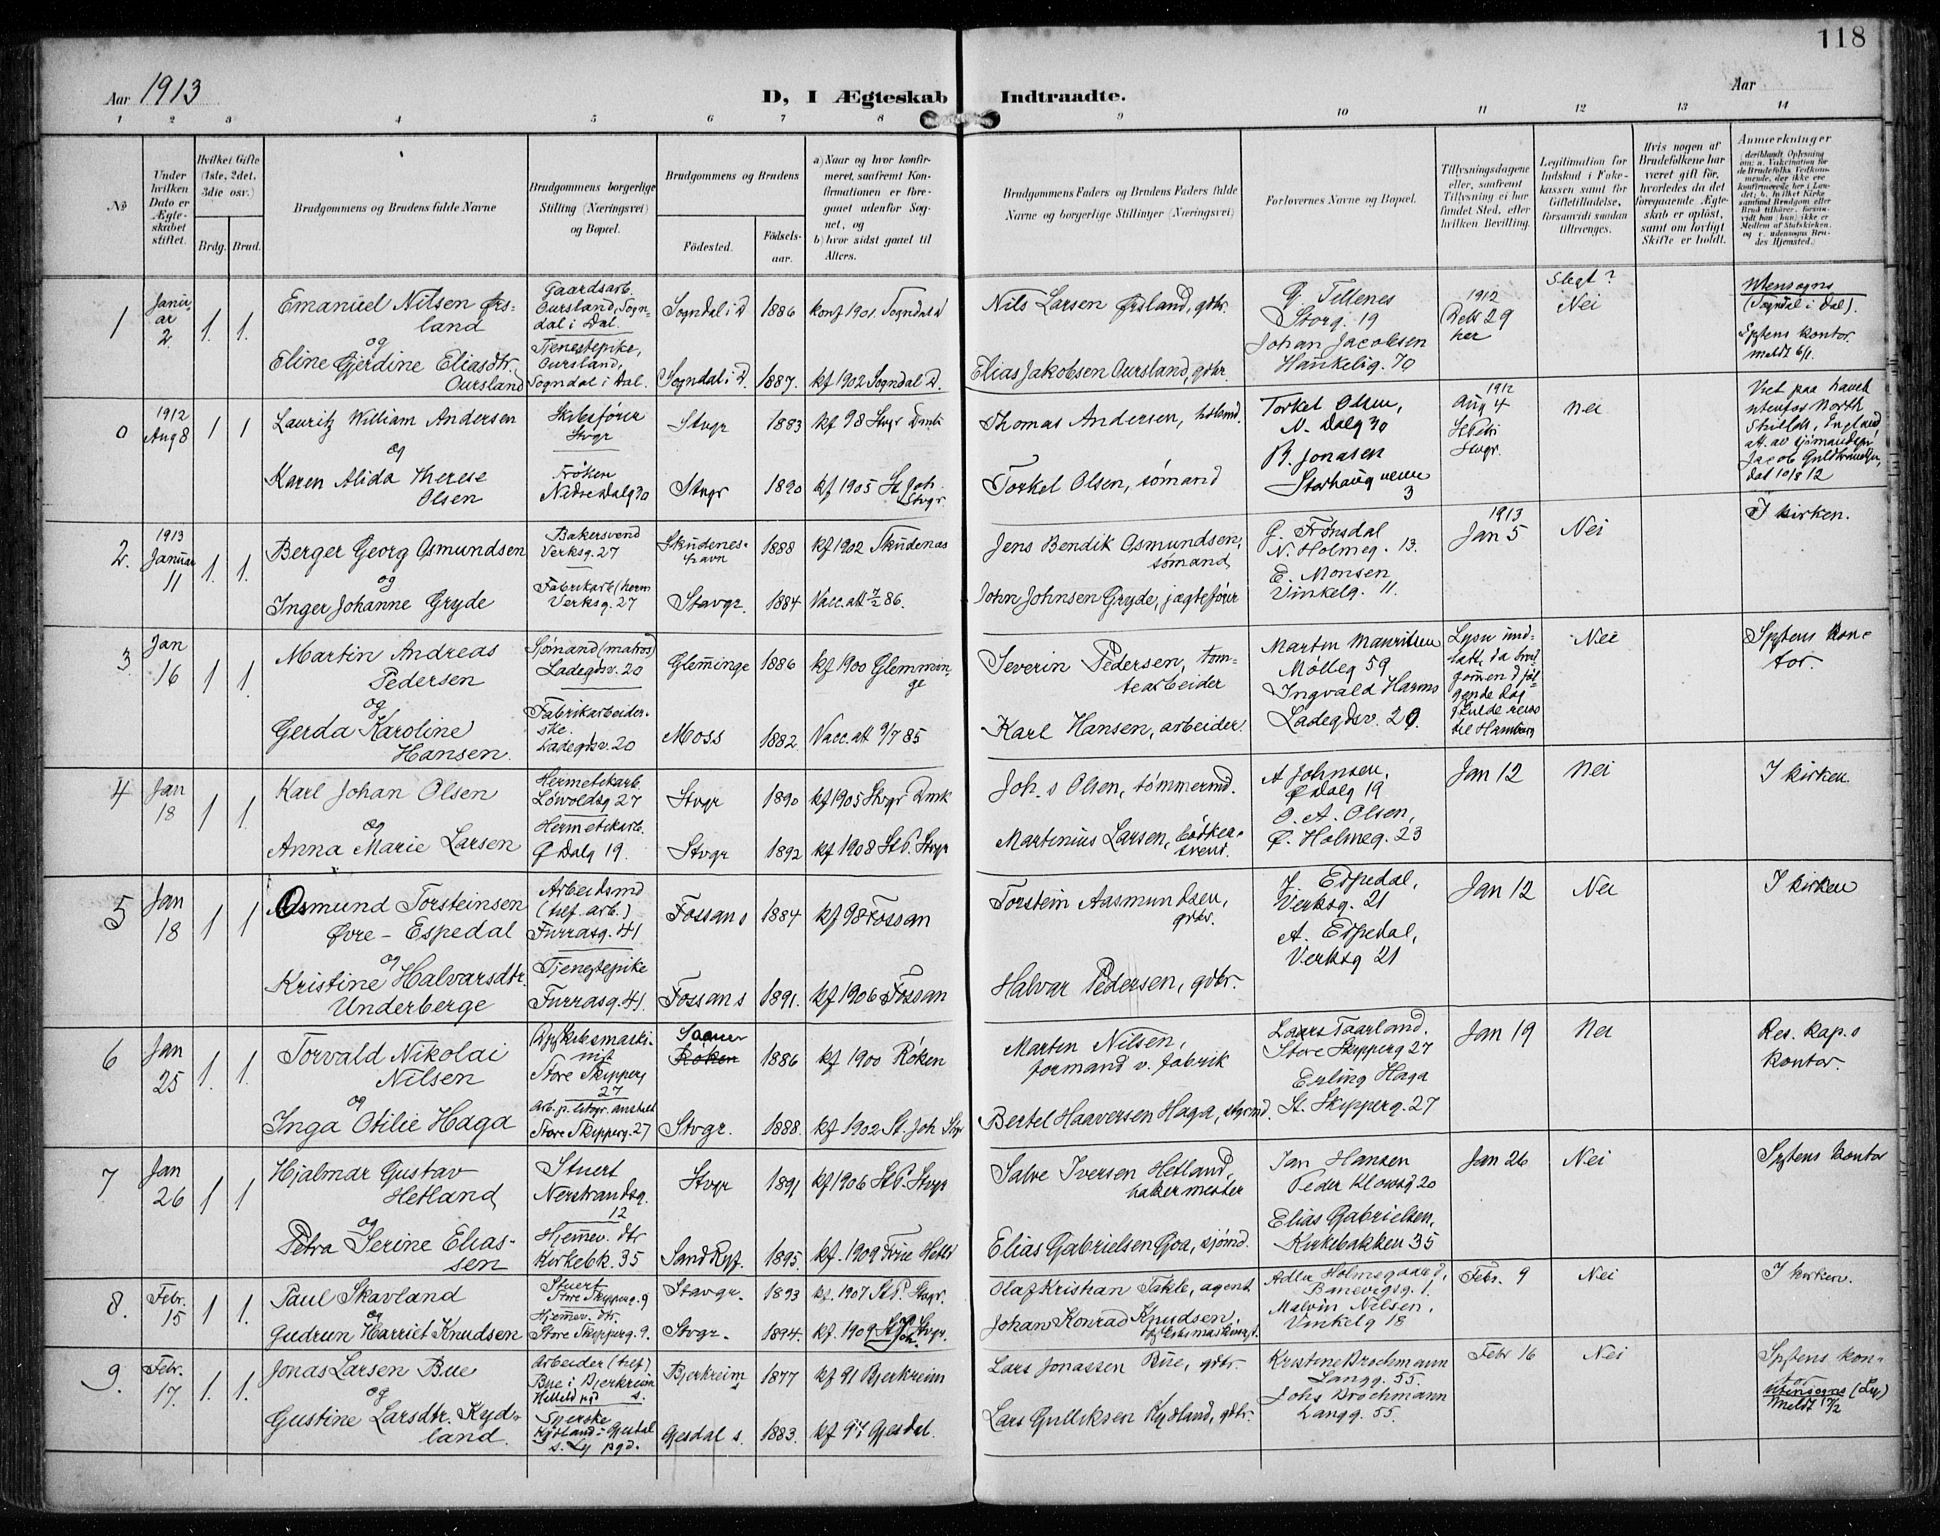 118
Aar 1913
D, I Ægteskab Indtraadte.
Aar
1 2 3 4 5 6 7 8 9 10 11 12 13 14
No
Under hvilken Dato er Ægteskabet stiftet.
Hvilket Gifte (1ste, 2det, 3die osv.)
Brdg. Brud.
Brudgommens og Brudens fulde Navne
Brudgommens borgerlige Stilling (Næringsvei) og Bopæl.
Brudgommens og Brudens
Fødested.
Fødselsaar.
a) Naar og hvor konfirmeret, saafremt Konfirmationen er foregaaet udenfor Sognet, og
b) hvor sidst gaaet til Alters.
Brudgommens Faders og Brudens Faders fulde Navne og borgerlige Stillinger (Næringsvei)
Forlovernes Navne og Bopæl.
Tillysningsdagene eller, saafremt Tillysning ei har fundet Sted, efter hvilken Bevilling.
Legitimation for Indskud i Enkekassen samt for Giftetilladelse, forsaavidt saadan tiltrænges.
Hvis nogen af Brudefolkene har været gift før, hvorledes da det foregaaende Ægteskab er opløst, samt om lovligt Skifte er holdt.
Anmærkninger
1 Januar 2 1. 1.
Emanuel Nilsen Ørsland
og
Eline Gjerdine Eliasdtr. Oursland
Gaardsarb. Oursland, Sogndal i Dal.
Tjenestepike, Oursland, Sogndal i Dal.
Sogndal i D 1886 konf 1901 Sogndal d
Sogndal i D. 1887. kf 1902 Sogndal D.
Nils Larsen Ørsland, gdbr.
Elias Jakobsen Oursland, gdbr.
G. Tellenes
Storg. 19
Johan Jacobsen
Haukelig. 70
1912 29 her
Slegt? Nei
Utensogns (Sogndal i Dal).
Sptens kontor
meldt 6/1.
0 1912 Aug 8 1 1
Lauritz William Andersen
og
Karen Alida Therese Olsen
Skibsfører Stvgr
Frøken Nedre Dalg 30
Stvgr 1883 kf 98 Stvgr Dmk
Stvgr 1890 kf 1905 St Joh. Stvgr
Thomas Andersen,
Torkel Olsen, sømand
Torkel Olsen,
N. Dalg 30
B. Jonasen
Storhaug 3
1912 Aug 4 St Petri Stvgr.
Nei
Viet paa havet utenfor North Shields, England, att. av sjømandspr. Jacob Guldbrandsen, dat 10/8 12
2. 1913 Januar 11 1. 1.
Berger Georg Osmundsen
og
Inger Johanne Gryde
Bakersvend Verksg. 27
Fabrikarb (herm Verksg. 27
Skudeneshavn 1888 kf 1902 Skudenes
Stavgr. 1884 Vacc. att 7/2 86.
Jens Bendik Osmundsen, sømand
John Johnsen Gryde, jægtefører
G. Frønsdal
N. Holmeg. 13.
E. Monsen
Vinkelg. 11.
1913 Jan 5
Nei
I kirken.
3. Jan 16 1 1.
Martin Andreas Pedersen
og
Gerda Karoline Hansen.
Sjømand (matros) Ladegdsv. 20
Fabrikarbeiderske. Ladegdsv. 20
Glemminge 1886 kf 1900 Glemminge
Moss 1882. Vacc. att 9/7 85
Severin Pedersen, tomtearbeider
Karl Hansen, arbeider
Marten Mauritsen
Mølleg 59
Ingvald Harms
Ladegdsv. 20.
Lysn undlatt, da brudgommen følgende dag skulde reise til Hamburg
Nei
Sptens kontor.
4 Jan 18 1 1.
Karl Johan Olsen
og
Anna Marie Larsen
Hermetikarb. Løwoldsg 27
Hermetikarb. Ø Dalg 19.
Stvgr 1890 kf 1905 Stvgr Dmk
Stvgr 1892 kf 1908 St P. Stvgr
Joh.s Olsen, tømmermd.
Martinius Larsen, bødkersvend.
A Johnsen,
Ø Dalg 19
O. A. Olsen,
Ø. Holmeg. 23
Jan 12
Nei
I kirken.
5 Jan 18 1 1
Osmund Torsteinsen Øvre-Espedal
og
Kristine Halvarsdtr. Underberge
Arbeidsmd (tilf. arb.) Furrasg. 41
Tjenestepike Furrasg. 41.
Fossan s 1884 kf 98 Fossan
Fossan s 1891. kf 1906 Fossan
Torstein Aasmundsen, gdbr.
Halvar Pedersen, gdbr.
J. Espedal,
Verksg. 21
A. Espedal,
Verksg 21
Jan 12
Nei
I kirken
6 Jan 25 1. 1.
Torvald Nikolai Nilsen
og
Inga Otilie Haga
Dypskibsmaskinist Store Skipperg 27
Arb. p. litogr. anstalt Store Skipperg. 27
Røken 1886 kf 1900 Røken
Stvgr. 1888. kf 1902 St. Joh Stvgr
Marten Nilsen, formand v. fabrik
Bertel Haaversen Haga, styrmd.
Lars Taarland.
Store Skipperg 27
Erling Haga
St. Skipperg. 27
Jan 19
Nei
Res. kap.s kontor.
7 Jan 26 1 1
Hjalmar Gustav Hetland
og
Petra Serine Eliassen
Stuert Nerstrandsg. 12
Hjemmev. dtr Kirkebk. 35
Stvgr 1891 kf 1906 St P. Stvgr
Sand Ryf. 1895. kf. 1909 Frue Hetl
Salve Iversen Hetland, bakermester
Elias Gabrielsen Goa, sjømd.
Jan Hansen
Peder Klowsg 20
Elias Gabrielsen,
Kirkebakken 35
Jan 26
Nei
Sptens kontor
8. Febr. 15 1 1.
Paul Skavland
og
Gudrun Harriet Knudsen
Stuert Store Skipperg. 9
Hjemmev. dtr. Store Skipperg. 9.
Stavgr. 1893 kf. 1907 St P. Stvgr.
Stvgr. 1894. kf. 1909 St Joh. Stvgr.
Olaf Kristian Takle, agent
Johan Konrad Knudsen,
Adler Holmegaard,
Banevigsg. 1.
Malvin Nilsen,
Vinkelg 18
Febr. 9
Nei
I kirken.
9. Febr. 17. 1. 1.
Jonas Larsen Bue
og
Gustine Larsdtr. Kydland.
Arbeider (tilf) Bue i Bjerkreim s.
Syerske Kydland i Gjesdal s. Ly pgd.
Bjerkreim s 1877 kf 91 Bjerkreim
Gjesdal s. 1883. kf 97 Gjesdal.
Lars Jonassen Bue, gdbr.
Lars Gulliksen Kydland, gdbr.
Kristine Brochmann
Langg. 55.
Johs Brochmann
Langg. 55.
Febr 16
Nei
Sptens kontor
Utensogns (Ly)
meldt